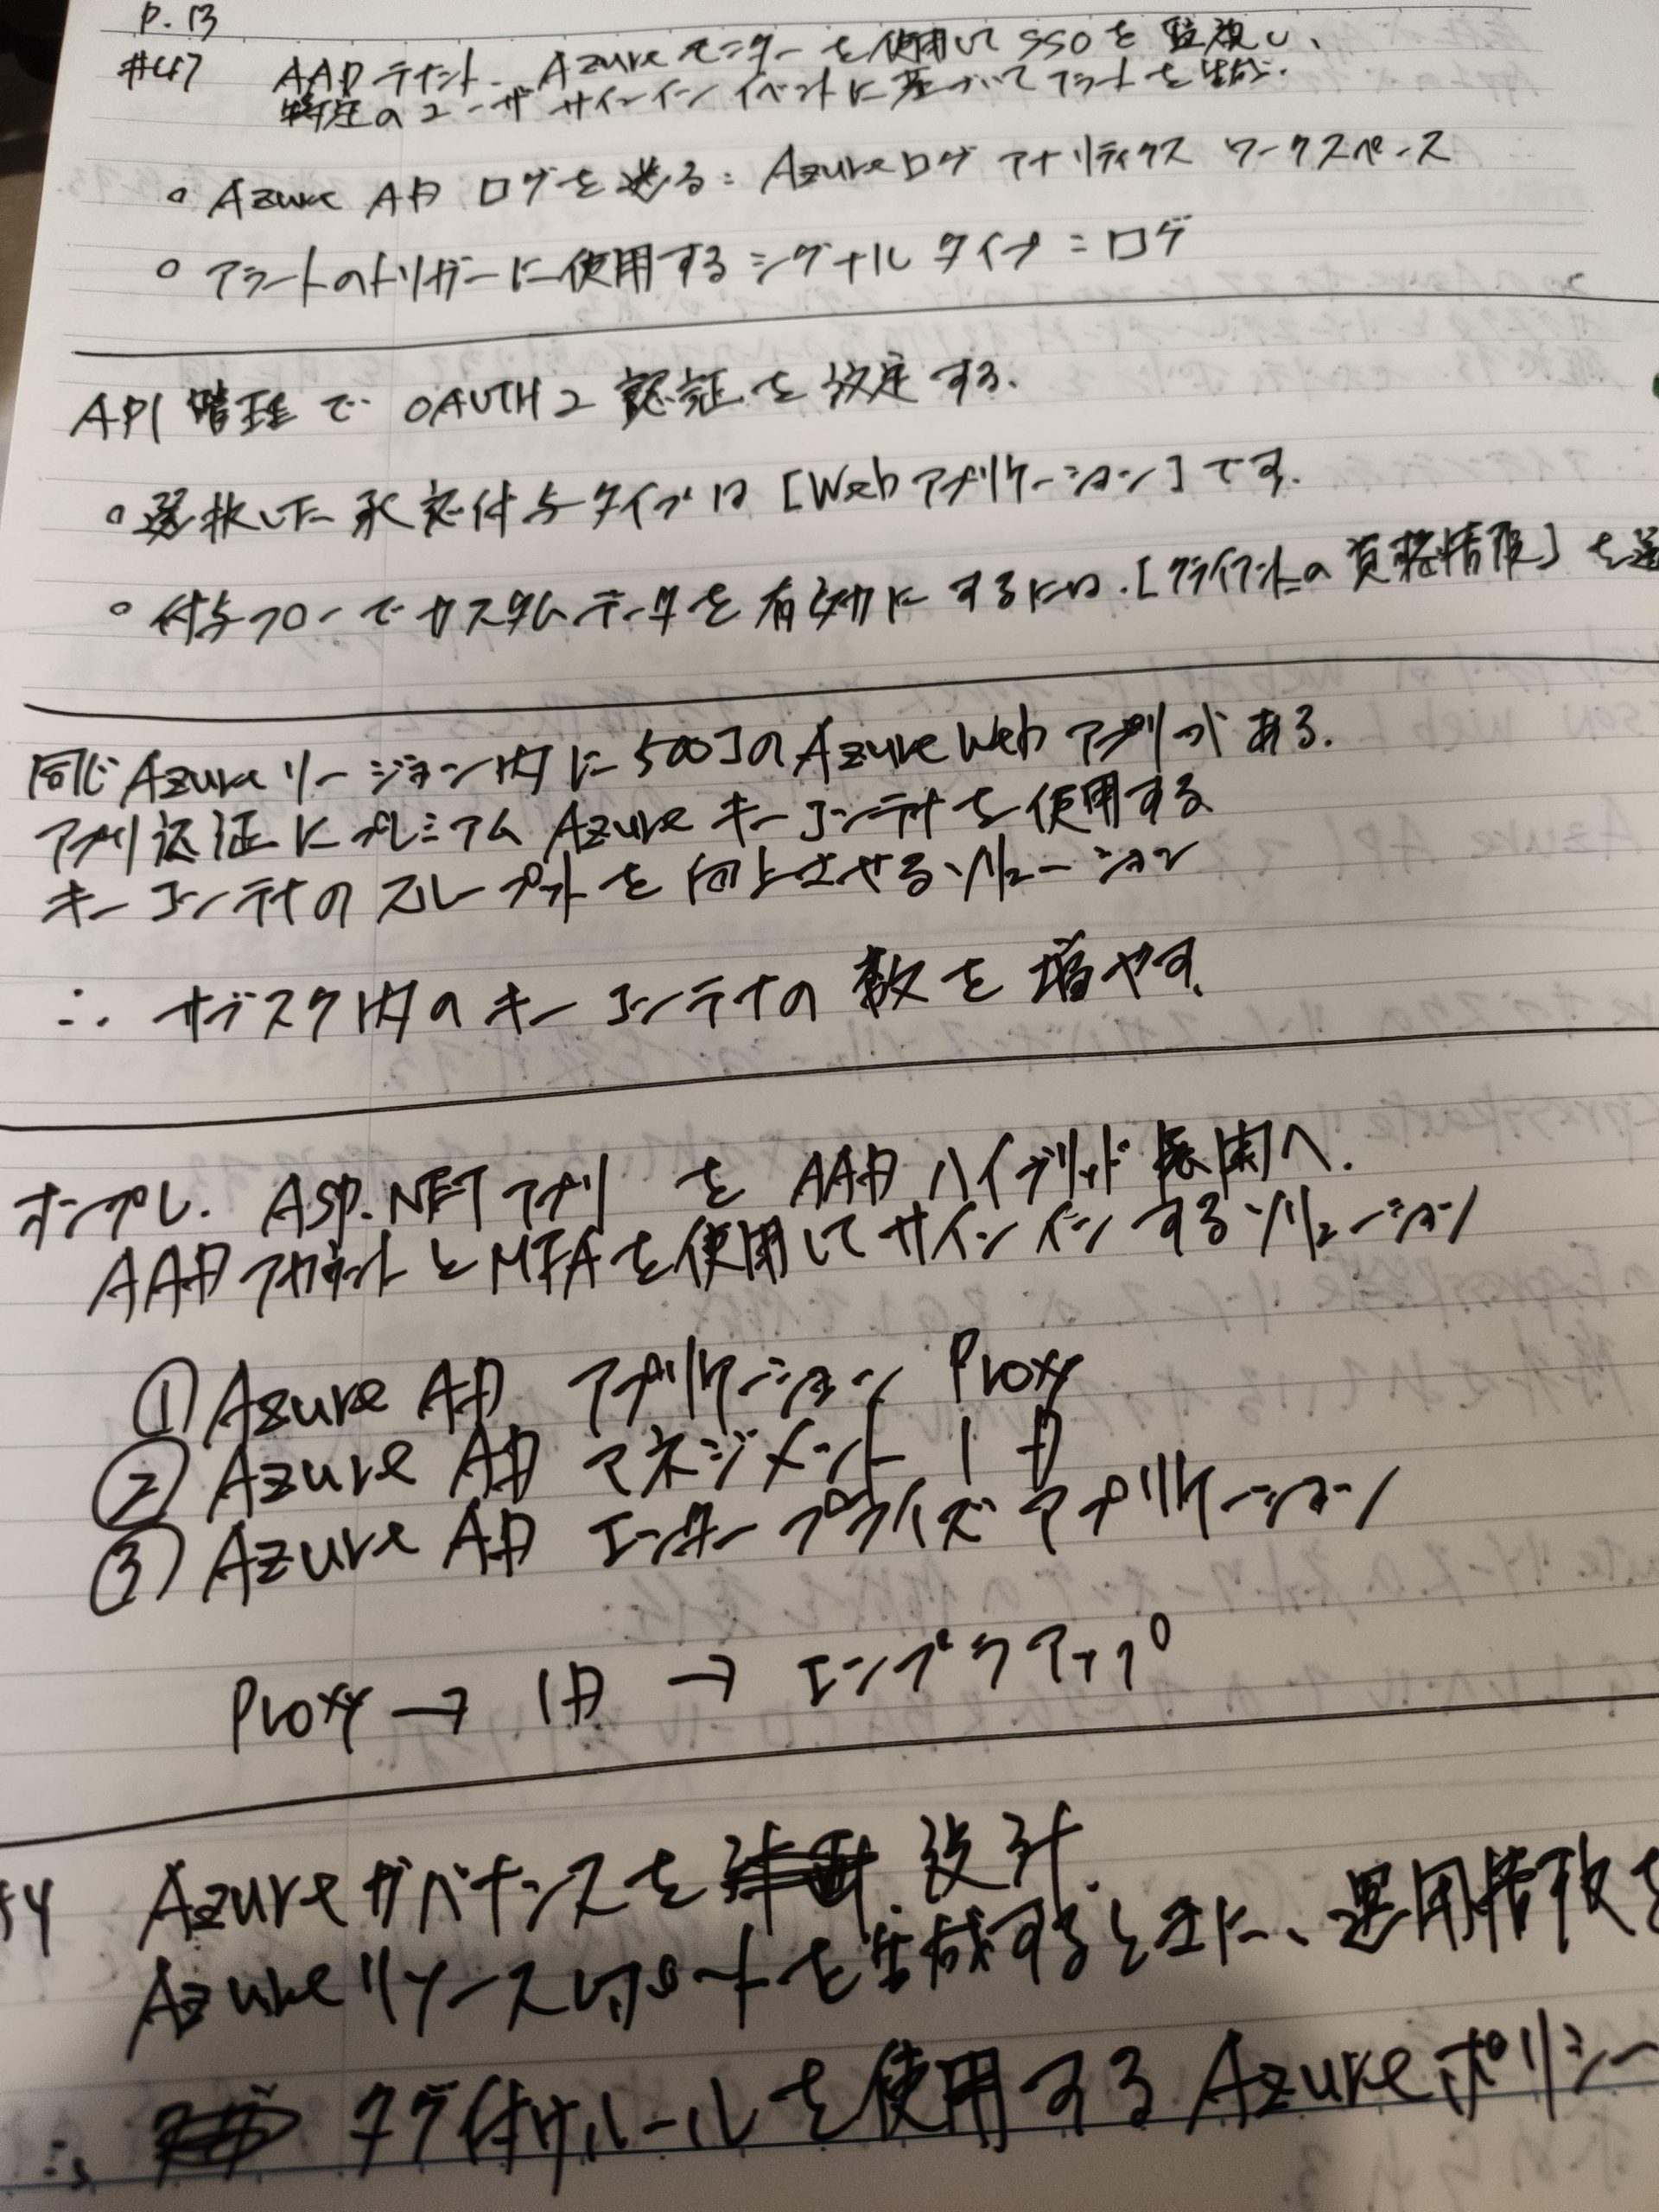 P.13
#47 AADテナント、Azureモニターを使用してSSOを監視し、
特定のユーザサインインイベントに基づいてアラートを生成.
○ Azure AD ログを送る: Azureログ アナリティクス ワークスペース
○ アラートのトリガーに使用するシグナル タイプ = ログ
API管理で OAUTH2 認証を設定する.
○ 選択した承認付与タイプは [Webアプリケーション] です.
○ 付与フローでカスタムデータを有効にするには.[クライアントの資格情報] を選
同じAzureリージョン内に500コのAzure Webアプリがある.
アプリ認証にプレミアムAzureキーコンテナを使用する
キーコンテナのスループットを向上させるソリューション
∴ サブスク内のキーコンテナの数を増やす.
オンプレ. ASP.NETアプリ を AADハイブリッド展開へ.
AADアカウントとMFAを使用してサインインするソリューション
① Azure AD アプリケーション Proxy
② Azure AD マネジメント ID
③ Azure AD エンタープライズアプリケーション
Proxy → ID → エンプラアップ
Azureガバナンスを 設計.
Azureリソースレポートを生成するときに、運用措施を
∴ タグ付けルールを使用するAzureポリシー